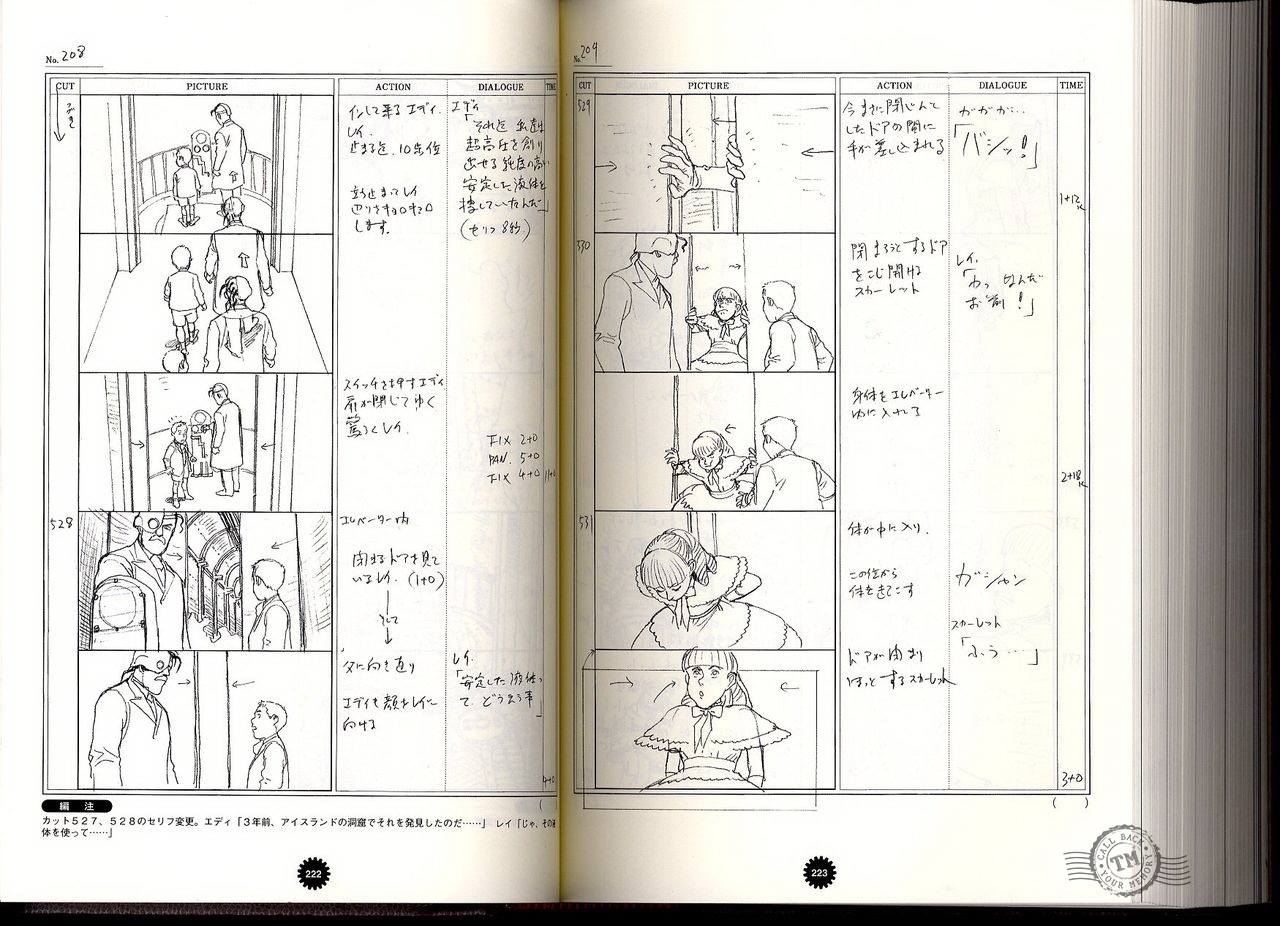 No. 208
CUT PICTURE ACTION DIALOGUE TIME
インして来るエディ.
レイ.
止まる迄.10歩位
立ち止まってレイ
辺りをキョロキョロ
します。
エディ
超高圧を創り
出せる純度の高い
安定した液体を
捜していたんだ」
(セリフ 8秒.)
スイッチを押すエディ
扉が閉じてゆく
驚ろくレイ.
FIX 2+0
PAN. 5+0
FIX 4+0
528
エレベーター内
閉まるドアを見て
いるレイ. (1+0)
そして
父に向き直り
エディも顔をレイに
向ける
レイ.
「安定した液体っ
て、どうゆう事
」
4+0
編 注
カット527、528のセリフ変更。エディ「3年前、アイスランドの洞窟でそれを発見したのだ……」 レイ「じゃ、その
体を使って……」
222
No. 209
CUT PICTURE ACTION DIALOGUE TIME
529
今まさに閉じんと
したドアの間に
手が差し込まれる
ガガガ…
「バシッ!」
1+12
530
閉まろうとするドア
をこじ開ける
スカーレット
レイ.
「わっ なんだ
お前 !」
身体をエレベーター
内に入れる
2+18
531
体が中に入り.
この位から
体をきてこす
ガシャン
スカーレット
「ふぅ…」
ドアが閉まり
ほっとするスカーレット
3+0
223
CALL BACK
TM
YOUR MEMORY